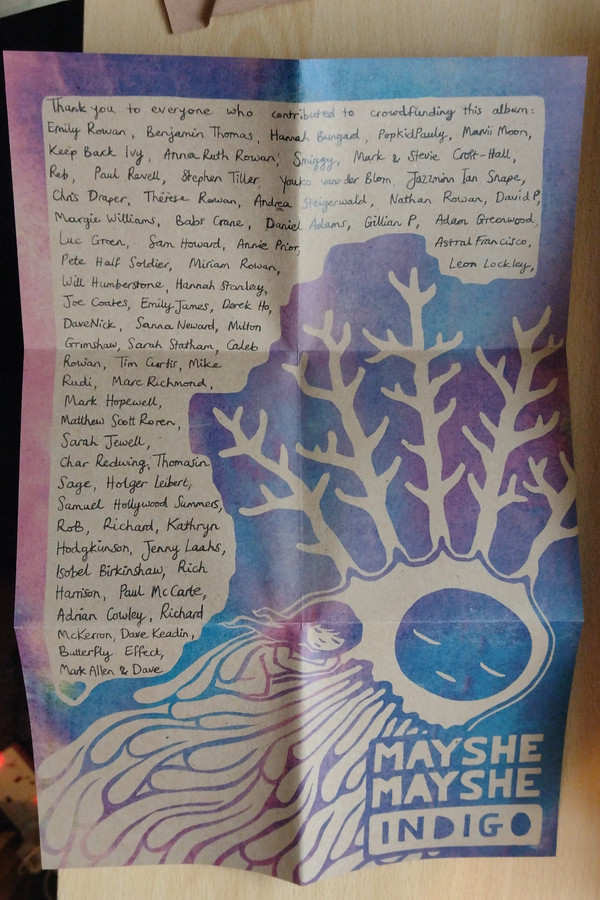 Thank you to everyone who contributed to crowdfunding this album:
Emily Rowan, Benjamin Thomas, Hannah Bungard, PopkidPauly, Marvii Moon,
Keep Back Ivy, Anna Ruth Rowan, Smiggy, Mark & Stevie Croft-Hall,
Reb, Paul Revell, Stephen Tiller, Youko van der Blom, Jazzminn Ian Snape,
Chris Draper, Thérèse Rowan, Andrea Steigerwald, Nathan Rowan, David P,
Margie Williams, Babs Crane, Daniel Adams, Gillian P, Adam Greenwood,
Luc Groen, Sam Howard, Annie Prior, Astral Francisco,
Pete Half Soldier, Miriam Rowan, Leon Lockley,
Will Humberstone, Hannah Stanley,
Joe Coates, Emily James, Derek Ho,
DaveNick, Sanna Neward, Milton
Grimshaw, Sarah Statham, Caleb
Rowan, Tim Curtis, Mike
Rudi, Marc Richmond,
Mark Hopewell,
Matthew Scott Roren,
Sarah Jewell,
Char Redwing, Thomasin
Sage, Holger Leibert,
Samuel Hollywood Summers,
RoB, Richard, Kathryn
Hodgkinson, Jenny Laahs,
Isobel Birkinshaw, Rich
Harrison, Paul McCarte,
Adrian Cowley, Richard
McKerron, Dave Keadin,
Butterfly Effect,
Mark Allen & Dave
MAYSHE
MAYSHE
INDIGO